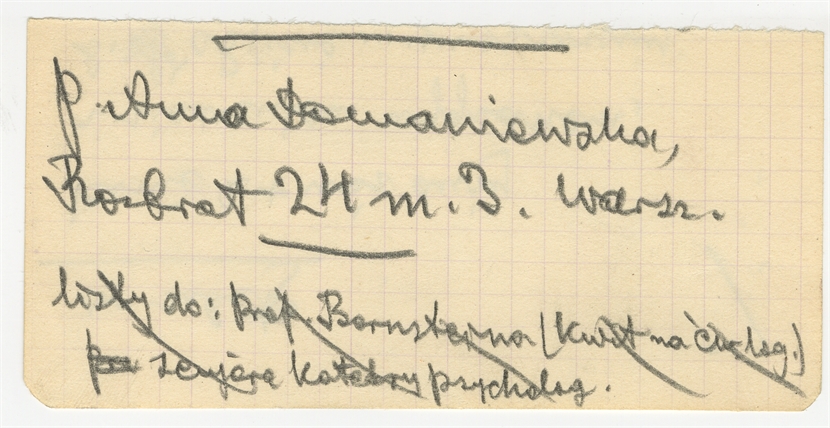 P. Anna Domaniewska,
Rozbrat 24 m. 3. Warsz.
listy do: prof. Bornsteina (Kwit na log.)
Katedry psycholog.